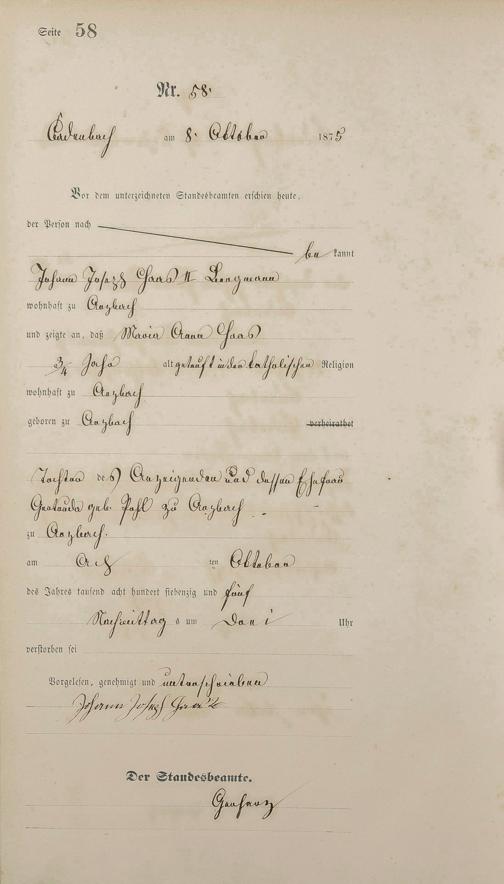 Seite 58
Nr. 58.
Cadenbach am 8. Oktober 1875
Vor dem unterzeichneten Standesbeamten erschien heute,
der Person nach
be kannt
Johann Joseph Haas II Bergmann
wohnhaft zu Arzbach
und zeigte an, daß Maria Anna Haas
3/4 Jahr alt getauft in der katholischen Religion
wohnhaft zu Arzbach
geboren zu Arzbach verheirathet
Tochter des Anzeigenden und dessen Ehefrau
Gertrude geb. Pohl zu Arzbach
zu Arzbach.
am Acht ten Oktober
des Jahres tausend acht hundert siebenzig und fünf
Nachmittag s um Drei Uhr
verstorben sei
Vorgelesen, genehmigt und unterschrieben
Johann Joseph Haas 2
Der Standesbeamte.